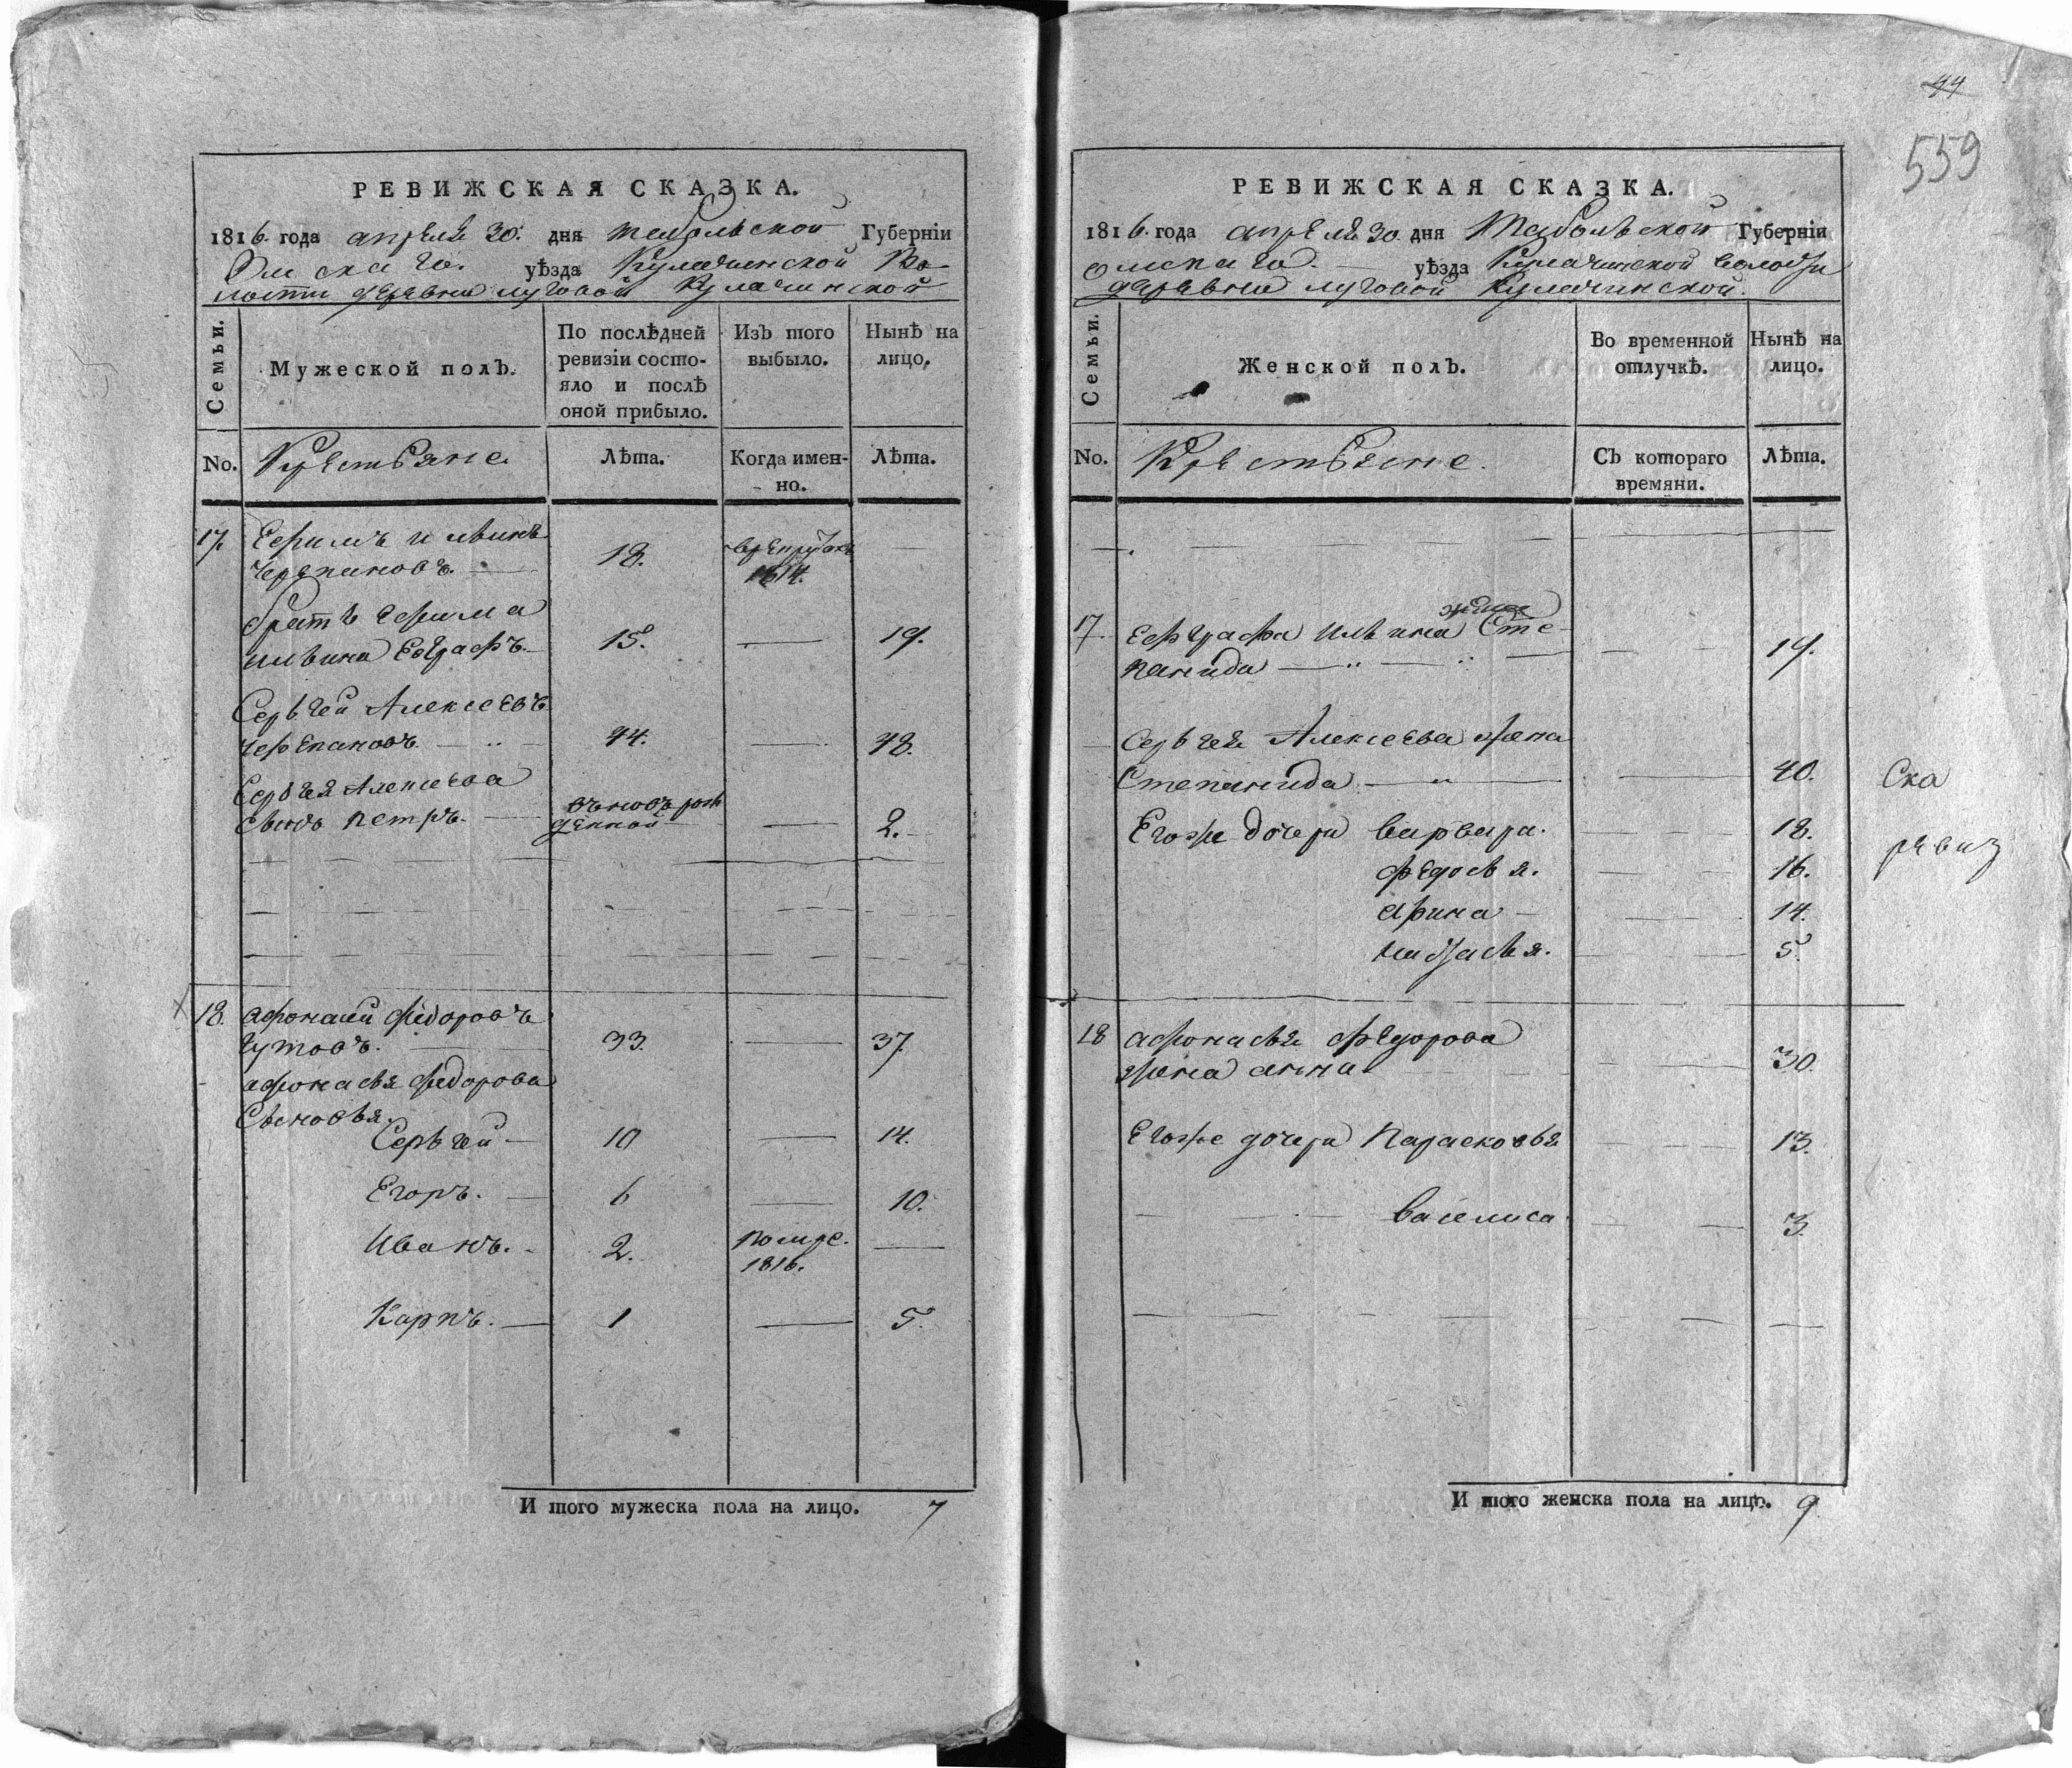 РЕВИЖСКАЯ СКАЗКА.
1816. года апреля 30. дня тобольской Губерніи
Омскаго. уѣзда Кулачинской Во-
лости деревни луговой Кулачинской
Семьи.
Мужеской полъ.
По послѣдней ревизіи состо-
яло и послѣ оной прибыло.
Изъ того выбыло.
Нынѣ на лицо.
No. Крестьяне. Лѣта. Когда имен-
но. Лѣта.
17. Ефимъ ильинъ
Черепановъ. 18. в рекрутахъ
1814.
братъ ефима
ильина Евграфъ. 15. 19.
Серьгей Алексеевъ
черепановъ 44. 48.
Серьгея Алексеева
сынъ петръ. вновь рож
денной 2.
18. афонасей федоровъ
Гутовъ. 33. 37.
афонасья федорова
Сыновья.
Серьгей 10 14.
Егоръ. 6 10.
Иванъ. 2. помре.
1816.
Карпъ. 1 5.
И того мужеска пола на лицо. 7
44
559
РЕВИЖСКАЯ СКАЗКА.
1816. года апреля 30 дня Тобольской Губерніи
омскаго. уѣзда Кулачинской волости
деревни луговой Кулачинской.
Семьи.
Женской полъ.
Во временной отлучкѣ.
Нынѣ на лицо.
No. Крестьяне. Съ котораго
времяни. Лѣта.
жена
17. Ефграфа ильина Сте-
панида 19.
Серьгея Алексеева жена
Степанида 40.
Егоже дочери варвара. 18.
федосья. 16.
арина 14.
настасья. 5.
Ска
ревиз
18 афонасья федорова
жена анна 30.
Егоже дочери Парасковья 13.
василиса 3.
И того женска пола на лицо. 9.